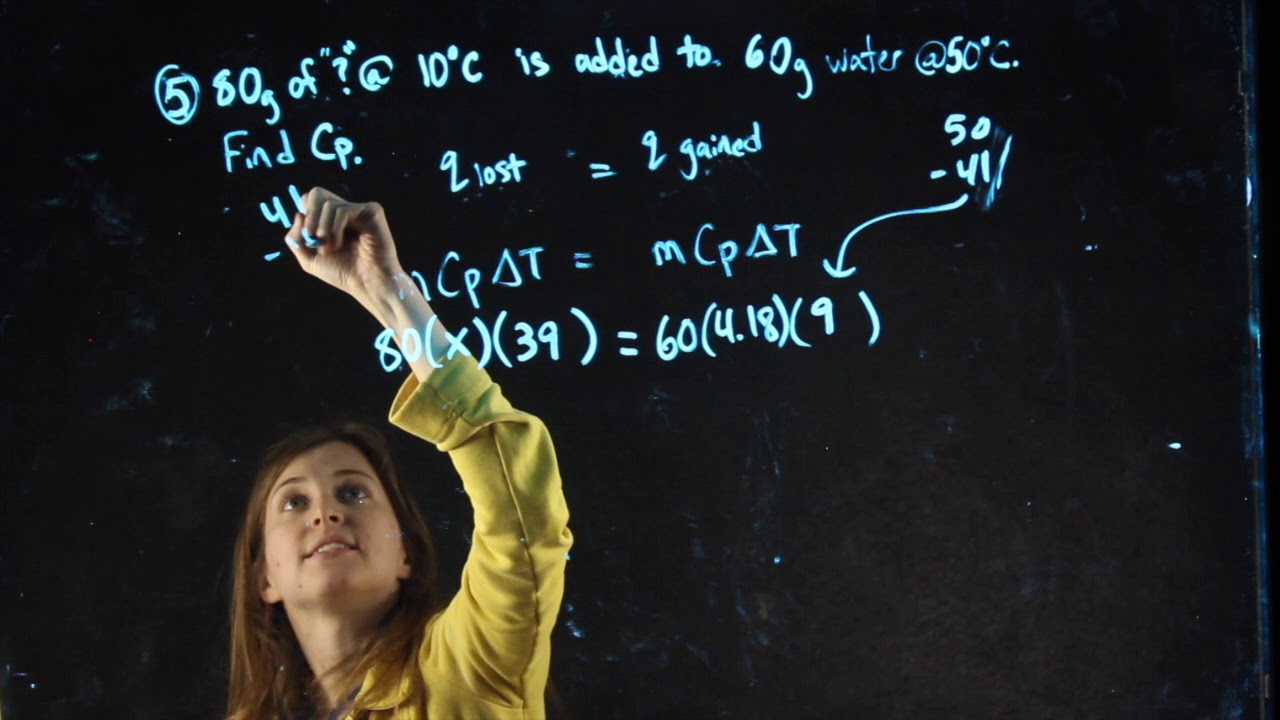 ⑤ 80g of "?" @ 10°C is added to 60g water @50°C.
Find Cp.
q lost = q gained
50
- 41
41
-
m Cp ΔT = m Cp ΔT
80(x)(39 ) = 60(4.18)(9 )